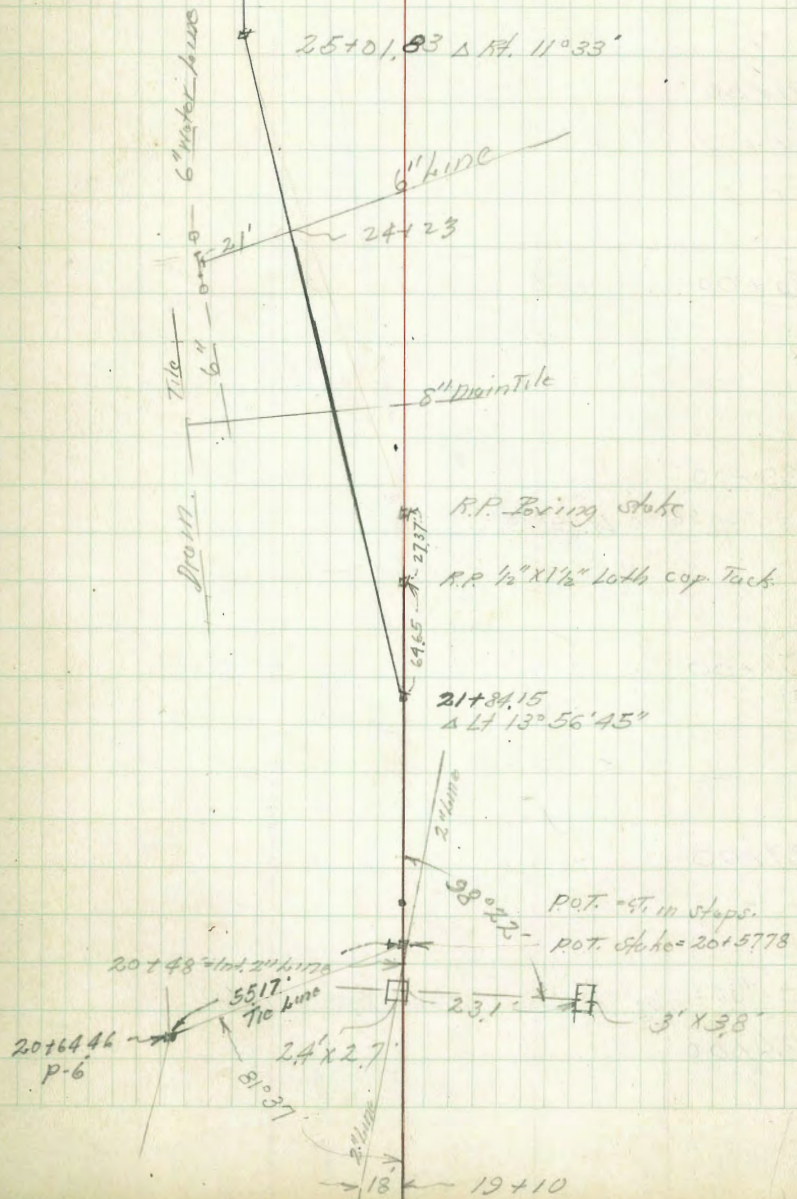 25+01.83 Δ Rt. 11°33'
6" Water Line
6" Line
21'
24+23
Tile
6"
8" Drain Tile
Drain.
R.P. Paving stake
27.37
R.P. 1/2" X 1 1/2" Lath cop. Tack
64.65
21+84.15
Δ Lt 13°56'45"
2" Line
98°22'
P.O.T. in steps.
P.O.T. Stake = 20+57.78
20+48 = Int. 2" Line
55.17'
Tie Line
23.1'
3' X 3.8'
20+64.46
P-6
2.4' X 2.7'
81°37
2" Line
18'
19+10